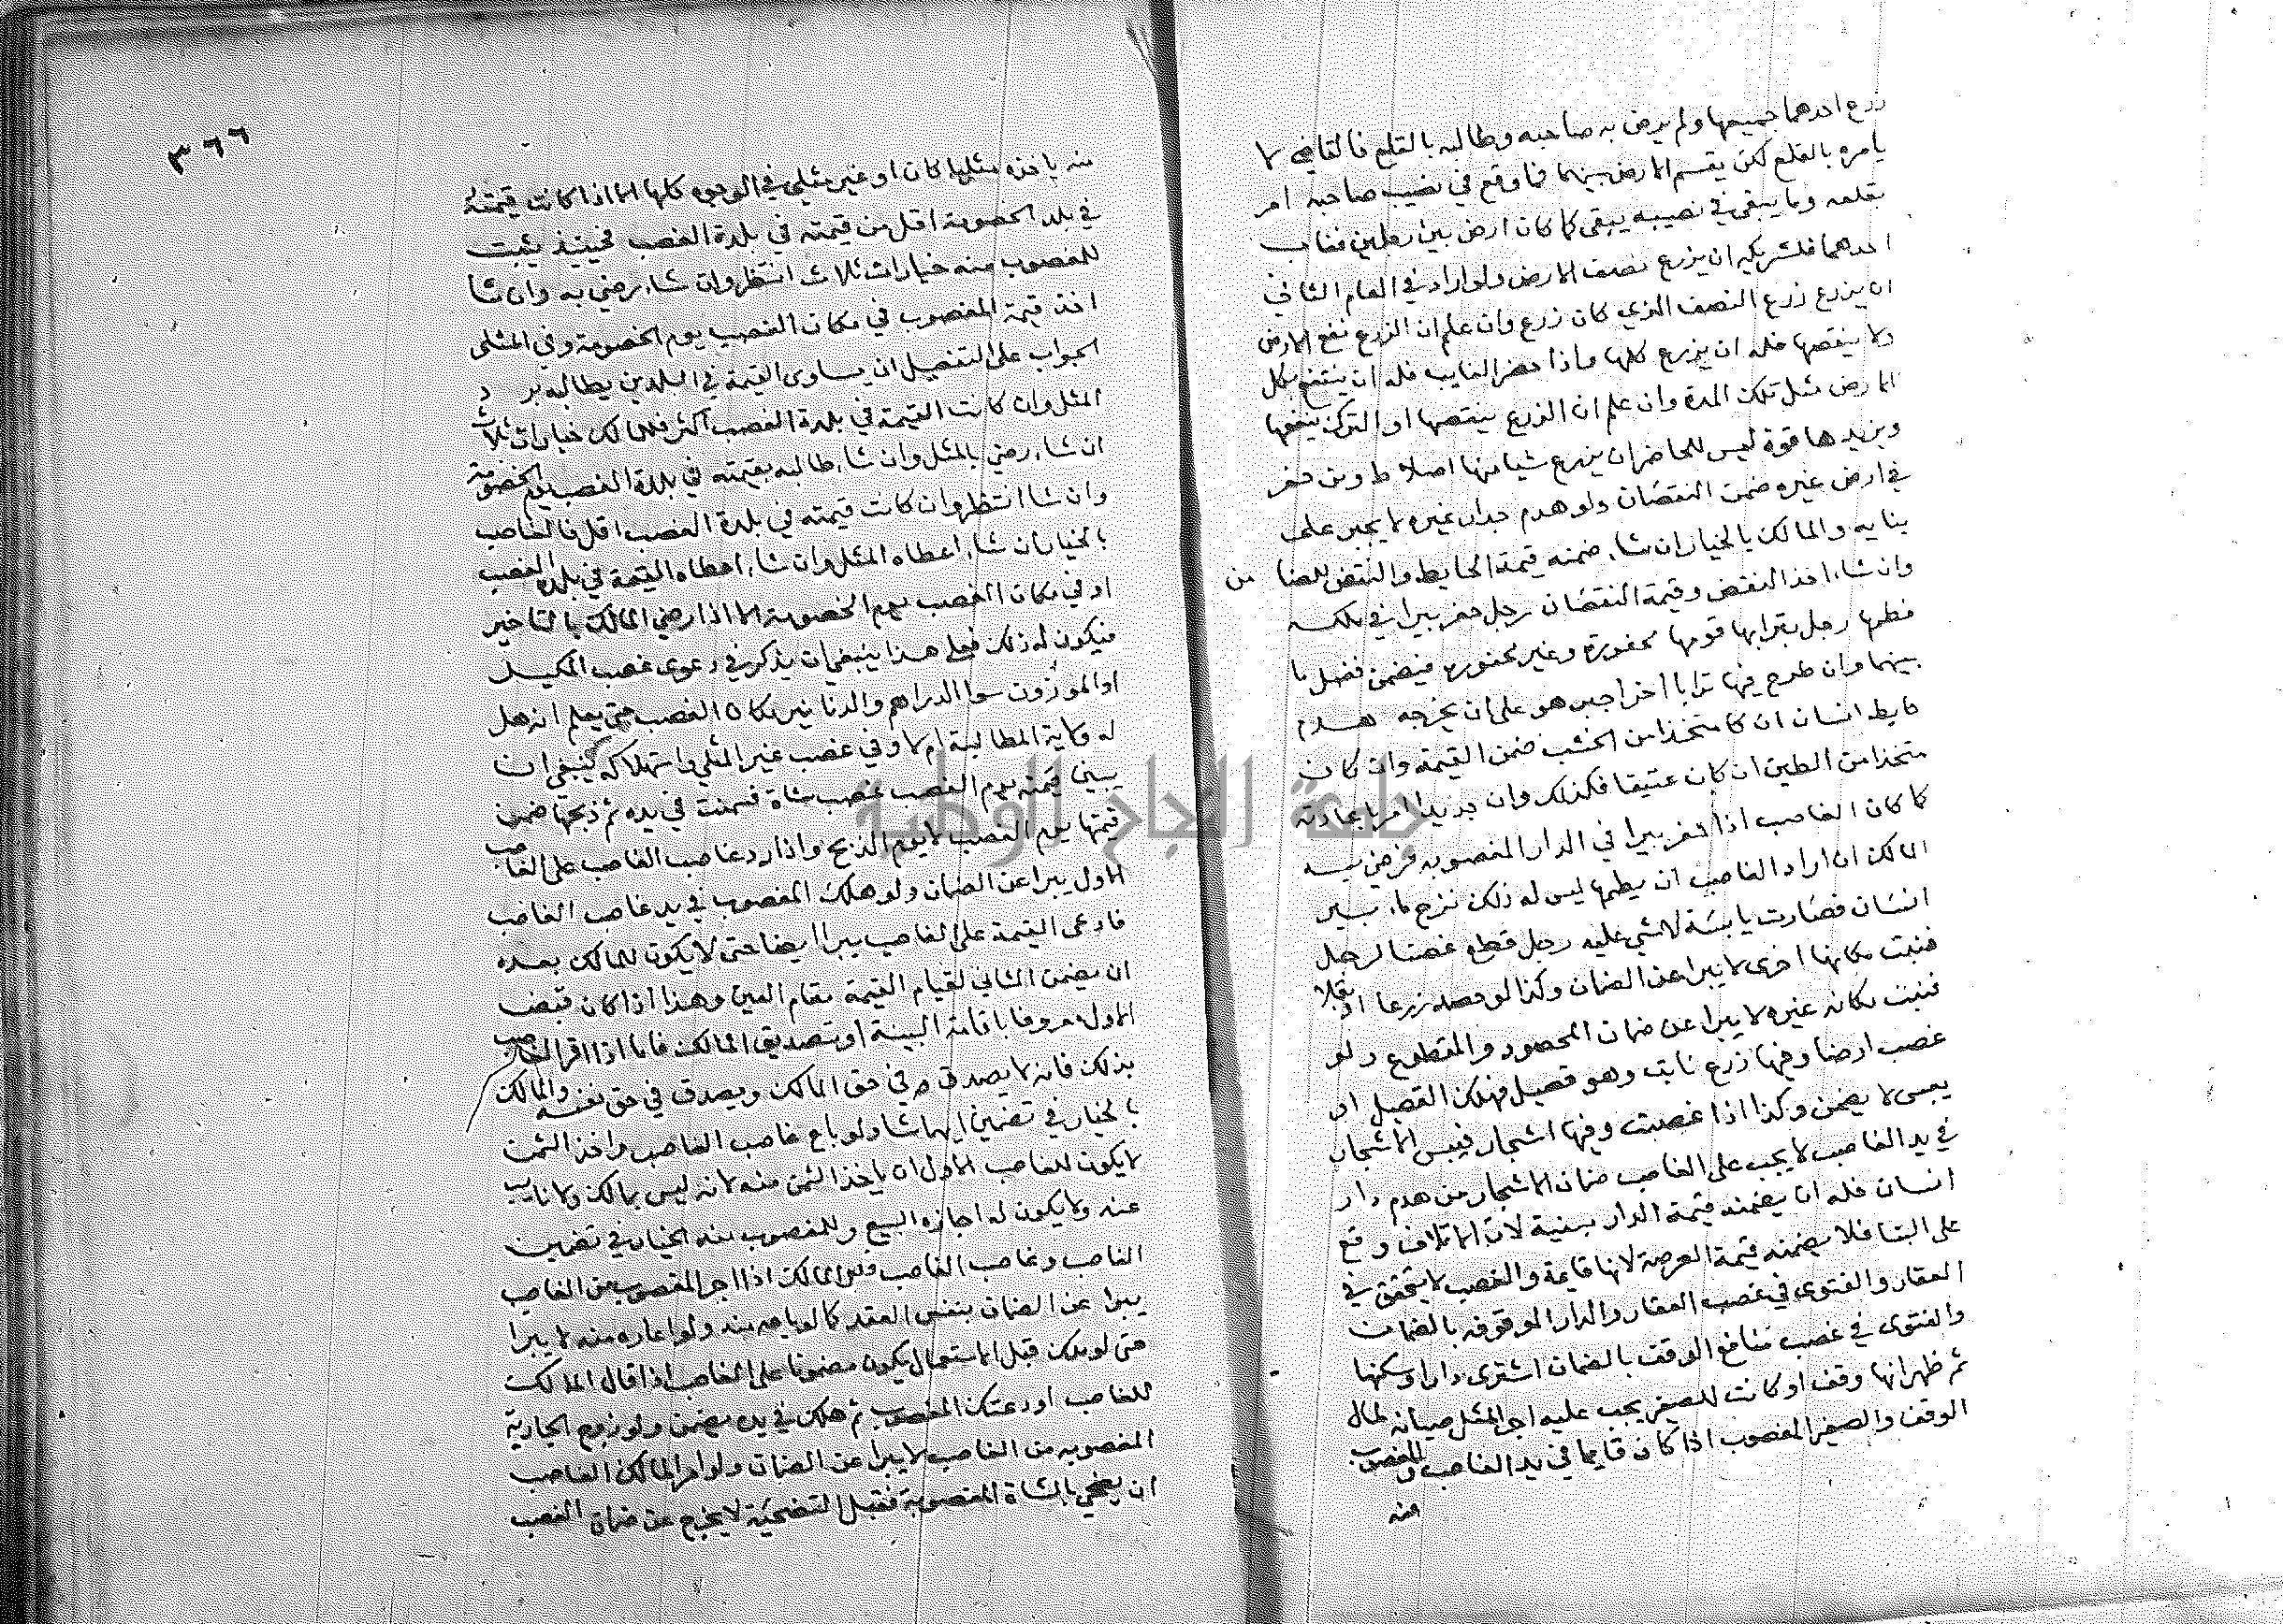 زرع احدهما جميعها ولم يرض به صاحبه وطالبه بالقلع فالقاضي لا
يامره بالقلع لكن يقسم الارض بينهما فما وقع في نصيب صاحبه امر
بقلعه وما يبقى في نصيبه يبقى كما كان ارض بين رجلين فغاب
احدهما فلشريكه ان يزرع نصف الارض ولو اراد في العام الثاني
ان يزرع زرع النصف الذي كان زرع وان علم ان الزرع نفع الارض
ولا ينقصها فله ان يزرع كلها واذا حضر الغايب فله ان ينتفع بكل
الارض مثل تلك المدة وان علم ان الزرع ينقصها او الترك ينفعها
ويزيدها قوة ليس للحاضر ان يزرع شيا منها اصلا ط ومن حفر
في ارض غيره ضمن النقصان ولو هدم جدار غيره لا يجبر على
بنايه والمالك بالخيار ان شاء ضمنه قيمة الحايط والنقض للضا من
وان شاء اخذ النقض وقيمة النقصان رجل حفر بيرا في ملكه
فطمها رجل بترابها قومها محفورة وغير محفورة فيضمن فضل ما
بينهما وان طرح فيها ترابا اخر اجبر هو على ان يخرجه هدم
حايط انسان ان كا متخذا من الخشب ضمن القيمة وان كان
متخذا من الطين ان كان عتيقا فكذلك وان جديدا امر باعادته
كما كان الغاصب اذا حفر بيرا في الدار المغصوبه فرضي به
المالك ان اراد الغاصب ان يطمها ليس له ذلك نزح ماء بير
انسان فصارت يابسة لا شي عليه رجل قطع غصنا لرجل
فنبت مكانها اخرى لا يبرا عن الضمان وكذا لو حصد زرعا او بقلا
فنبت مكانه غيره لا يبرا عن ضمان المحصود والمقطوع ولو
غصب ارضا وفيها زرع نابت وهو قصيل فهلك القصيل او
يبس لا يضمن وكذا اذا غصبت وفيها اشجار فيبس الاشجار
في يد الغاصب لا يجب على الغاصب ضمان الاشجار من هدم دار
انسان فله ان يضمنه قيمة الدار بنية لان الاتلاف وقع
على البنا فلا يضمنه قيمة العرصة لانها قايمة والغصب لا يتحقق في
العقار والفتوى في غصب العقار والدار الموقوفه بالضمان
والفتوى في غصب منافع الوقف بالضمان اشترى دارا وسكنها
ثم ظهر انها وقف او كانت للصغير يجب عليه اجر المثل صيانه لمال
الوقف والصغير المغصوب اذا كان قايما في يد الغاصب و للمغصوب
منه
٣٦٦
منه ياخذه مثليا كان او غير مثلي في الوجوه كلها الا اذا كانت قيمته
في بلد الخصومة اقل من قيمته في بلدة الغصب فحينيذ يثبت
للمغصوب منه خيارات ثلاث انتظر وان شاء رضي به وان شا
اخذ قيمة المغصوب في مكان الغصب يوم الخصومة وفي المثلى
الجواب على التفصيل ان يساوى القيمة في البلدين يطالبه برد
المثل وان كانت القيمة في بلدة الغصب اكثر فللمالك خيارات ثلاث
ان شاء رضي بالمثل وان شاء طالبه بقيمته في بلدة الغصب يوم الخصومة
وان شا انتظر وان كانت قيمته في بلدة الغصب اقل فالغاصب
بالخيار ان شاء اعطاه المثل وان شاء اعطاه القيمة في بلدة الغصب
او في مكان الغصب يوم الخصومة الا اذا رضي المالك بالتاخير
فيكون له ذلك فعلى هذا ينبغي ان يذكر في دعوى غصب المكيل
او الموزون سوا الدراهم والدنانير مكان الغصب حتى يعلم انه هل
له ولاية المطالبة ام لا وفي غصب غير المثلي واستهلاكه ينبغي ان
يبين قيمته يوم الغصب غصب شاة فسمنت في يده ثم ذبحها ضمن
قيمتها يوم الغصب لا يوم الذبح واذا رد غاصب الغاصب على الغاصب
الاول يبرا عن الضمان ولو هلك المغصوب في يد غاصب الغاصب
فادعى القيمة على الغاصب يبرا ايضا حتى لا يكون للمالك بعده
ان يضمن الثاني لقيام القيمة مقام العين وهذا اذا كان قبض
الاول معروفا باقامة البينة او تصديق المالك فاما اذا اقر الغاصب
بذلك فانه لا يصدق في حق المالك ويصدق في حق نفسه والمالك
بالخيار في تضمين ايهما شا ولو باع غاصب الغاصب واخذ الثمن
لا يكون للغاصب الاول ان ياخذ الثمن منه لانه ليس بمالك ولا نايب
عنه ولا يكون له اجازه البيع وللمغصوب منه الخيار في تضمين
الغاصب وغاصب الغاصب المالك اذا اجر المغصوب من الغاصب
يبرا عن الضمان بنفس العقد كما لو باعه منه ولو اعاره منه لا يبرا
حتى لو هلك قبل الاستعمال يكون مضمونا على الغاصب اذا قال المالك
للغاصب اودعتك المغصوب ثم هلك في يده يضمن ولو زوج الجارية
المغصوبه من الغاصب لا يبرا عن الضمان ولو امر المالك الغاصب
ان يضحي بالشاة المغصوبة فقبل التضحية لا يخرج عن ضمان الغصب
جامعة النجاح الوطنية